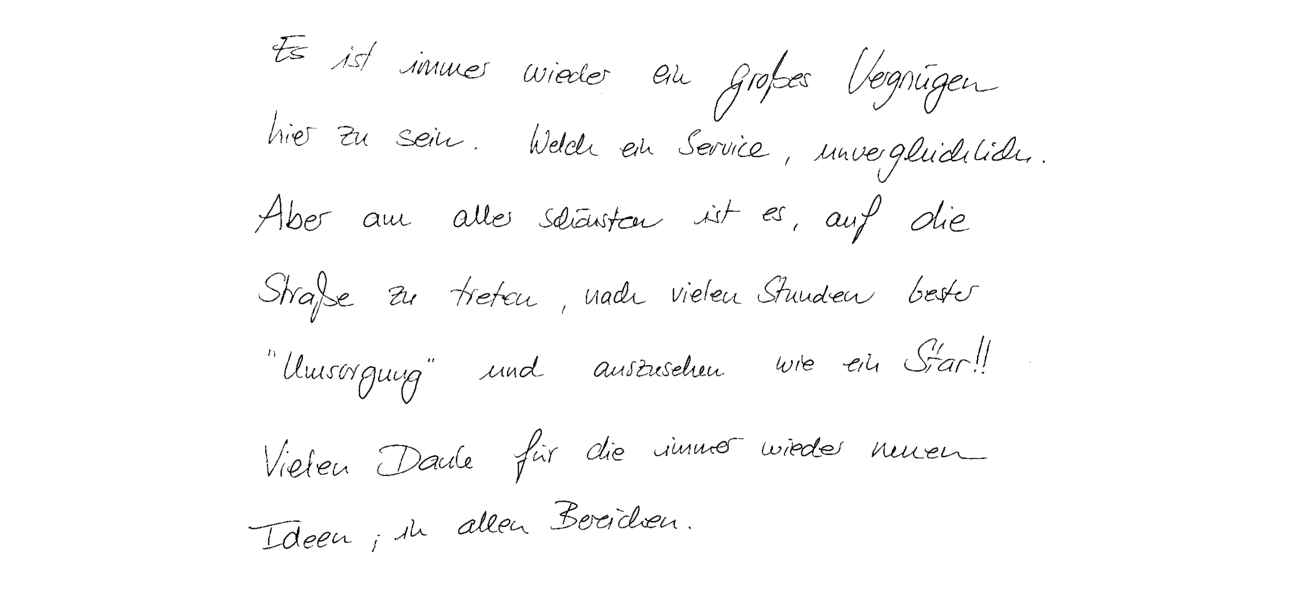 Es ist immer wieder ein großes Vergnügen
hier zu sein. Welch ein Service, unvergleichlich.
Aber am aller schönsten ist es, auf die
Straße zu treten, nach vielen Stunden bester
"Umsorgung" und auszusehen wie ein Star!!
Vielen Dank für die immer wieder neuen
Ideen, in allen Bereichen.